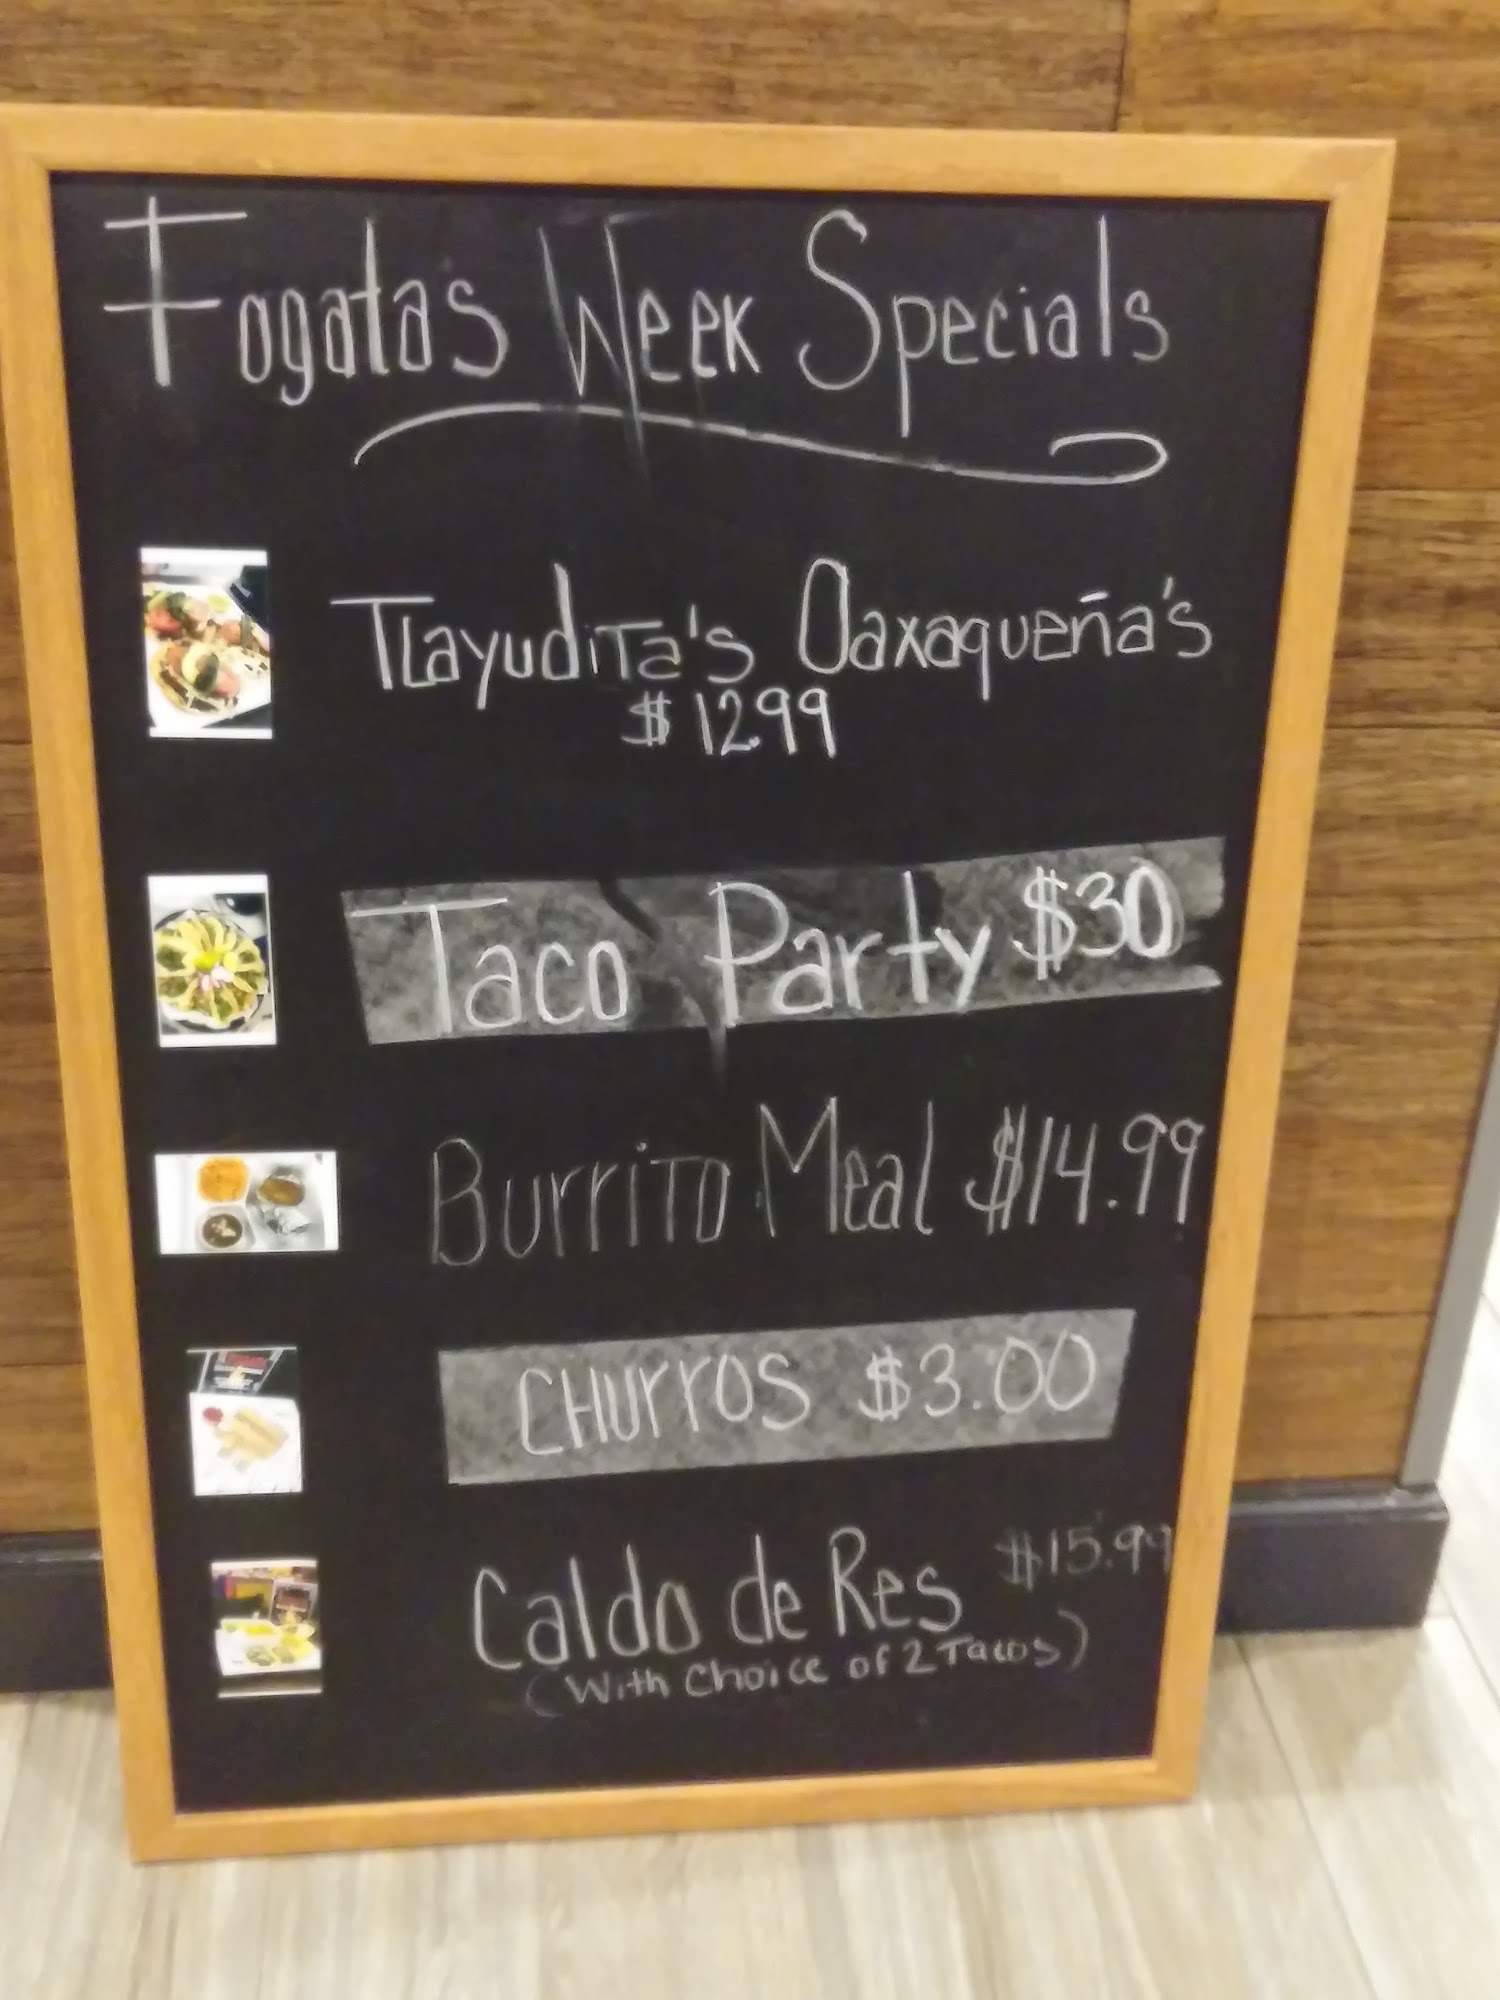 Fogata's Week Specials
Tlayudita's Oaxaqueña's
$12.99
Taco Party $30
Burrito Meal $14.99
Churros $3.00
Caldo de Res $15.99
(With Choice of 2 Tacos)